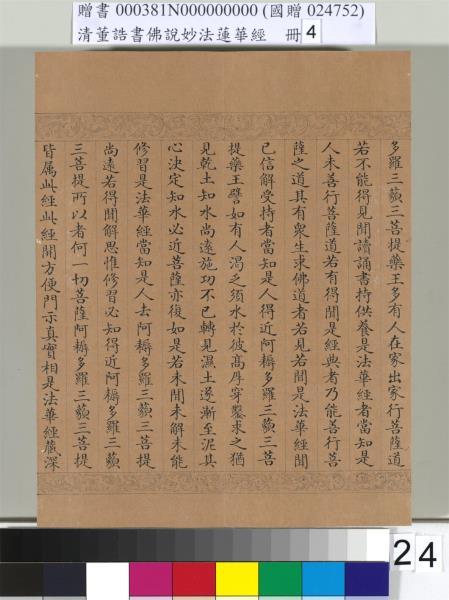 贈書 000381N000000000 (國贈 024752)
清董誥書佛說妙法蓮華經 冊 4
多羅三藐三菩提藥王多有人在家出家行菩薩道
若不能得見聞讀誦書持供養是法華經者當知是
人未善行菩薩道若有得聞是經典者乃能善行菩
薩之道其有眾生求佛道者若見若聞是法華經聞
已信解受持者當知是人得近阿耨多羅三藐三菩
提藥王譬如有人渴乏須水於彼高原穿鑿求之猶
見乾土知水尚遠施功不已轉見濕土遂漸至泥其
心決定知水必近菩薩亦復如是若未聞未解未能
修習是法華經當知是人去阿耨多羅三藐三菩提
尚遠若得聞解思惟修習必知得近阿耨多羅三藐
三菩提所以者何一切菩薩阿耨多羅三藐三菩提
皆屬此經此經開方便門示真實相是法華經藏深
24